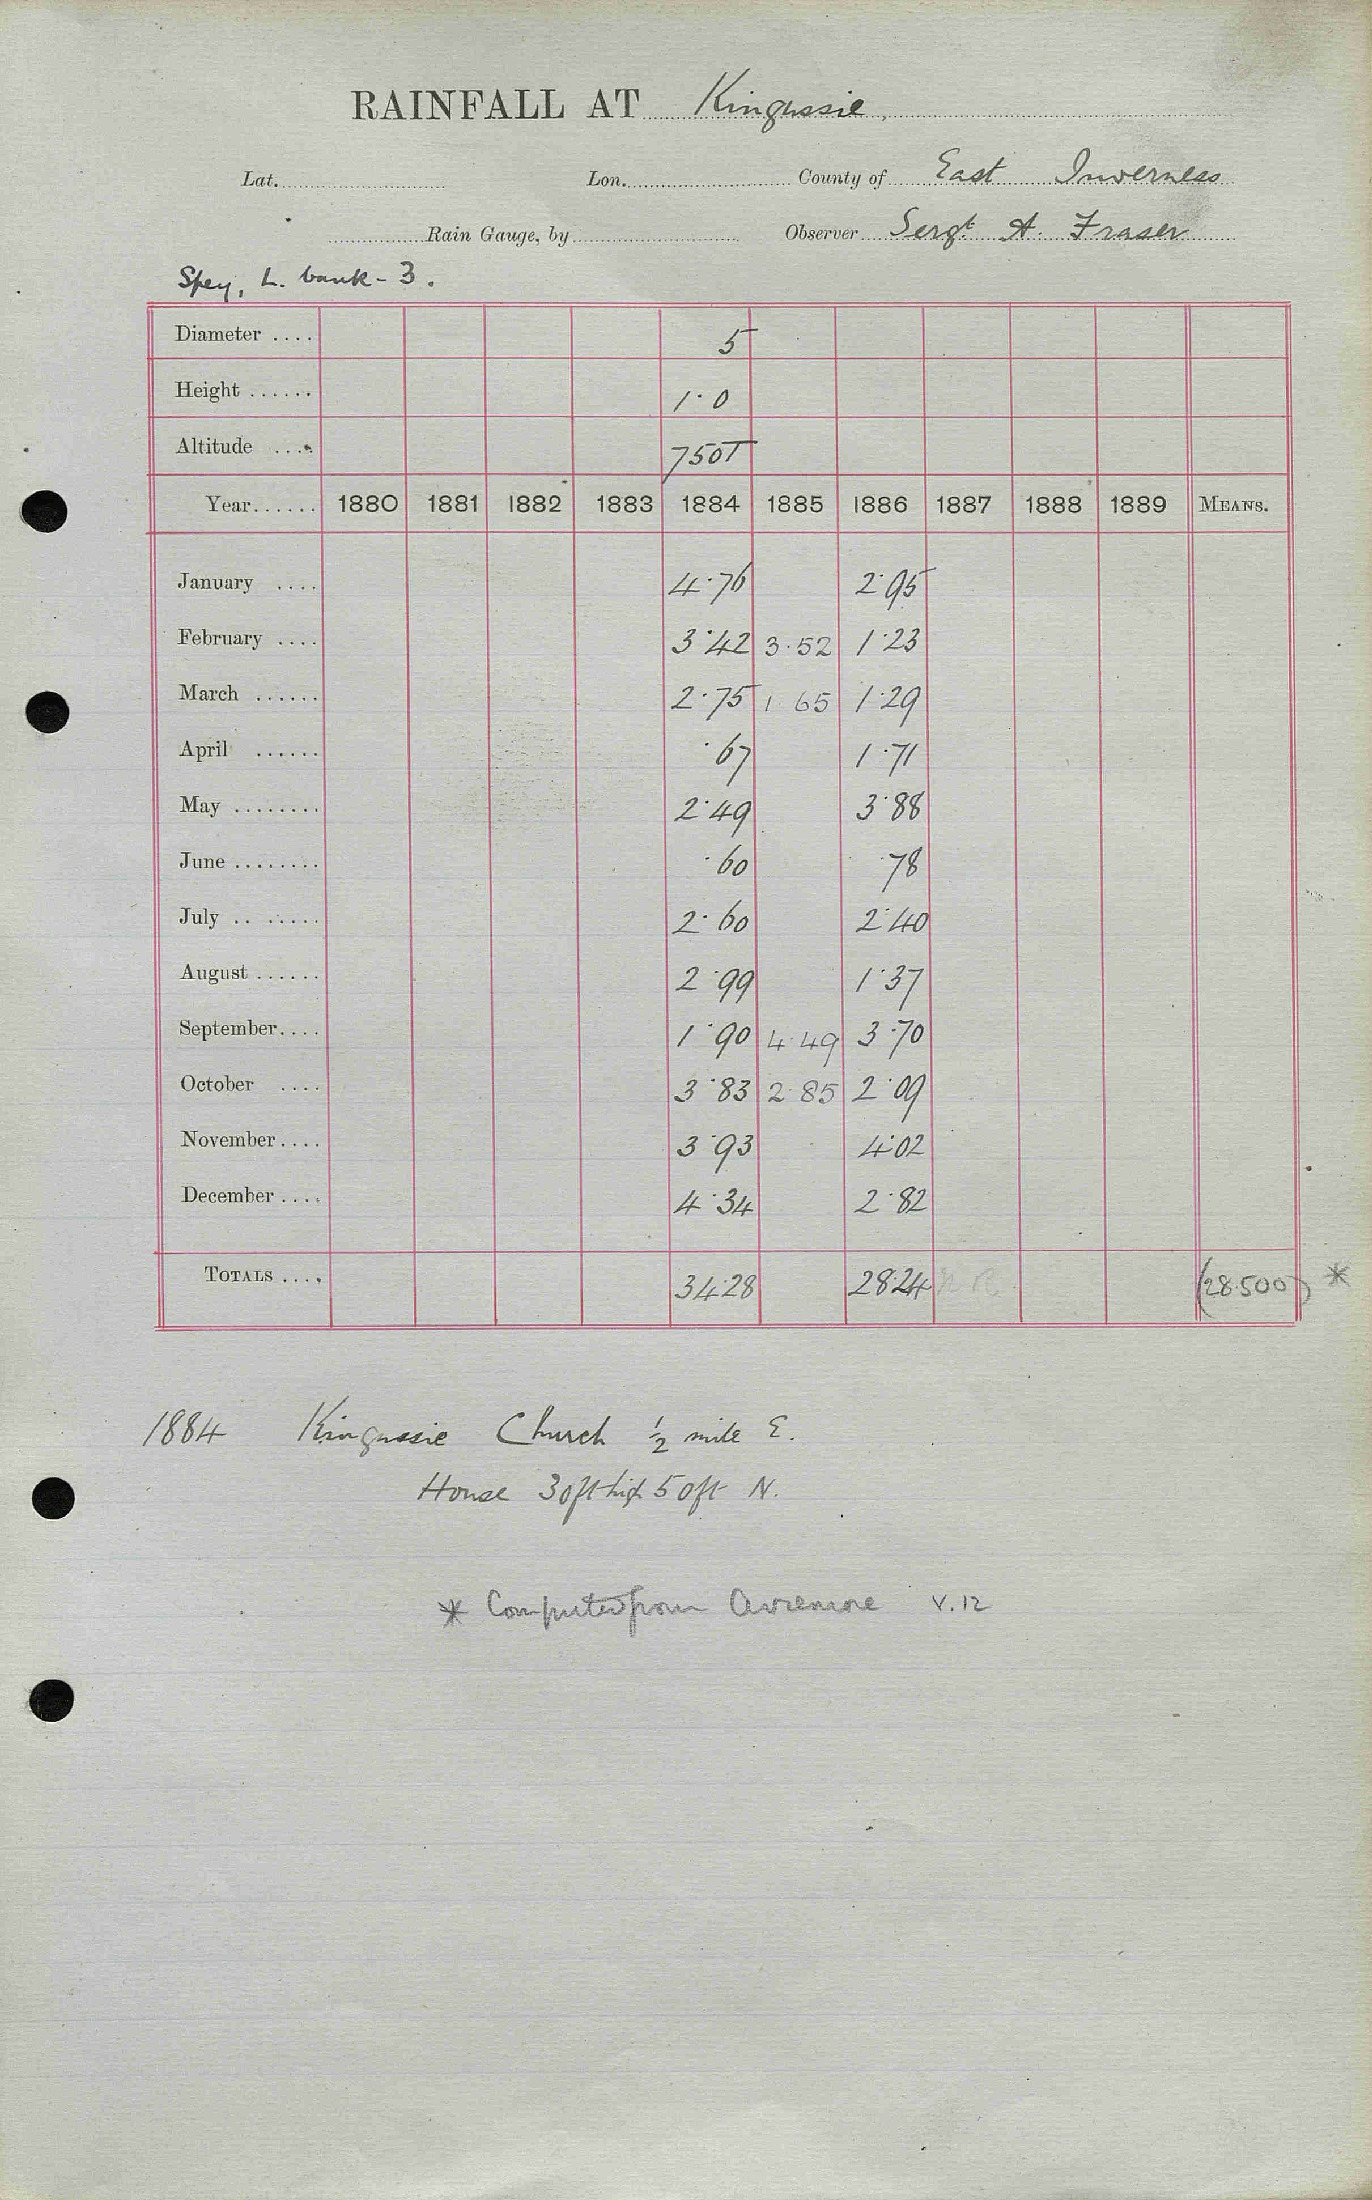 RAINFALL AT Kingussie,
Lat. Lon. County of East Inverness
Rain Gauge, by Observer Sergt A. Fraser
Spey, L. bank - 3.
Diameter .... 5
Height ...... 1·0
Altitude .... 750T
Year...... 1880 1881 1882 1883 1884 1885 1886 1887 1888 1889 MEANS.
January .... 4·76 2·95
February .... 3·42 3·52 1·23
March ...... 2·75 1 65 1·29
April ...... ·67 1·71
May ........ 2·49 3·88
June ........ ·60 ·78
July .. ...... 2·60 2·40
August ...... 2·99 1·37
September.... 1·90 4·49 3·70
October .... 3·83 2·85 2·09
November.... 3·93 4·02
December.... 4·34 2·82
TOTALS .... 34·28 28·24 (28·500) *
1884 Kingussie Church ½ mile E.
House 30ft high 50ft N.
* Computed from Aviemore V.12